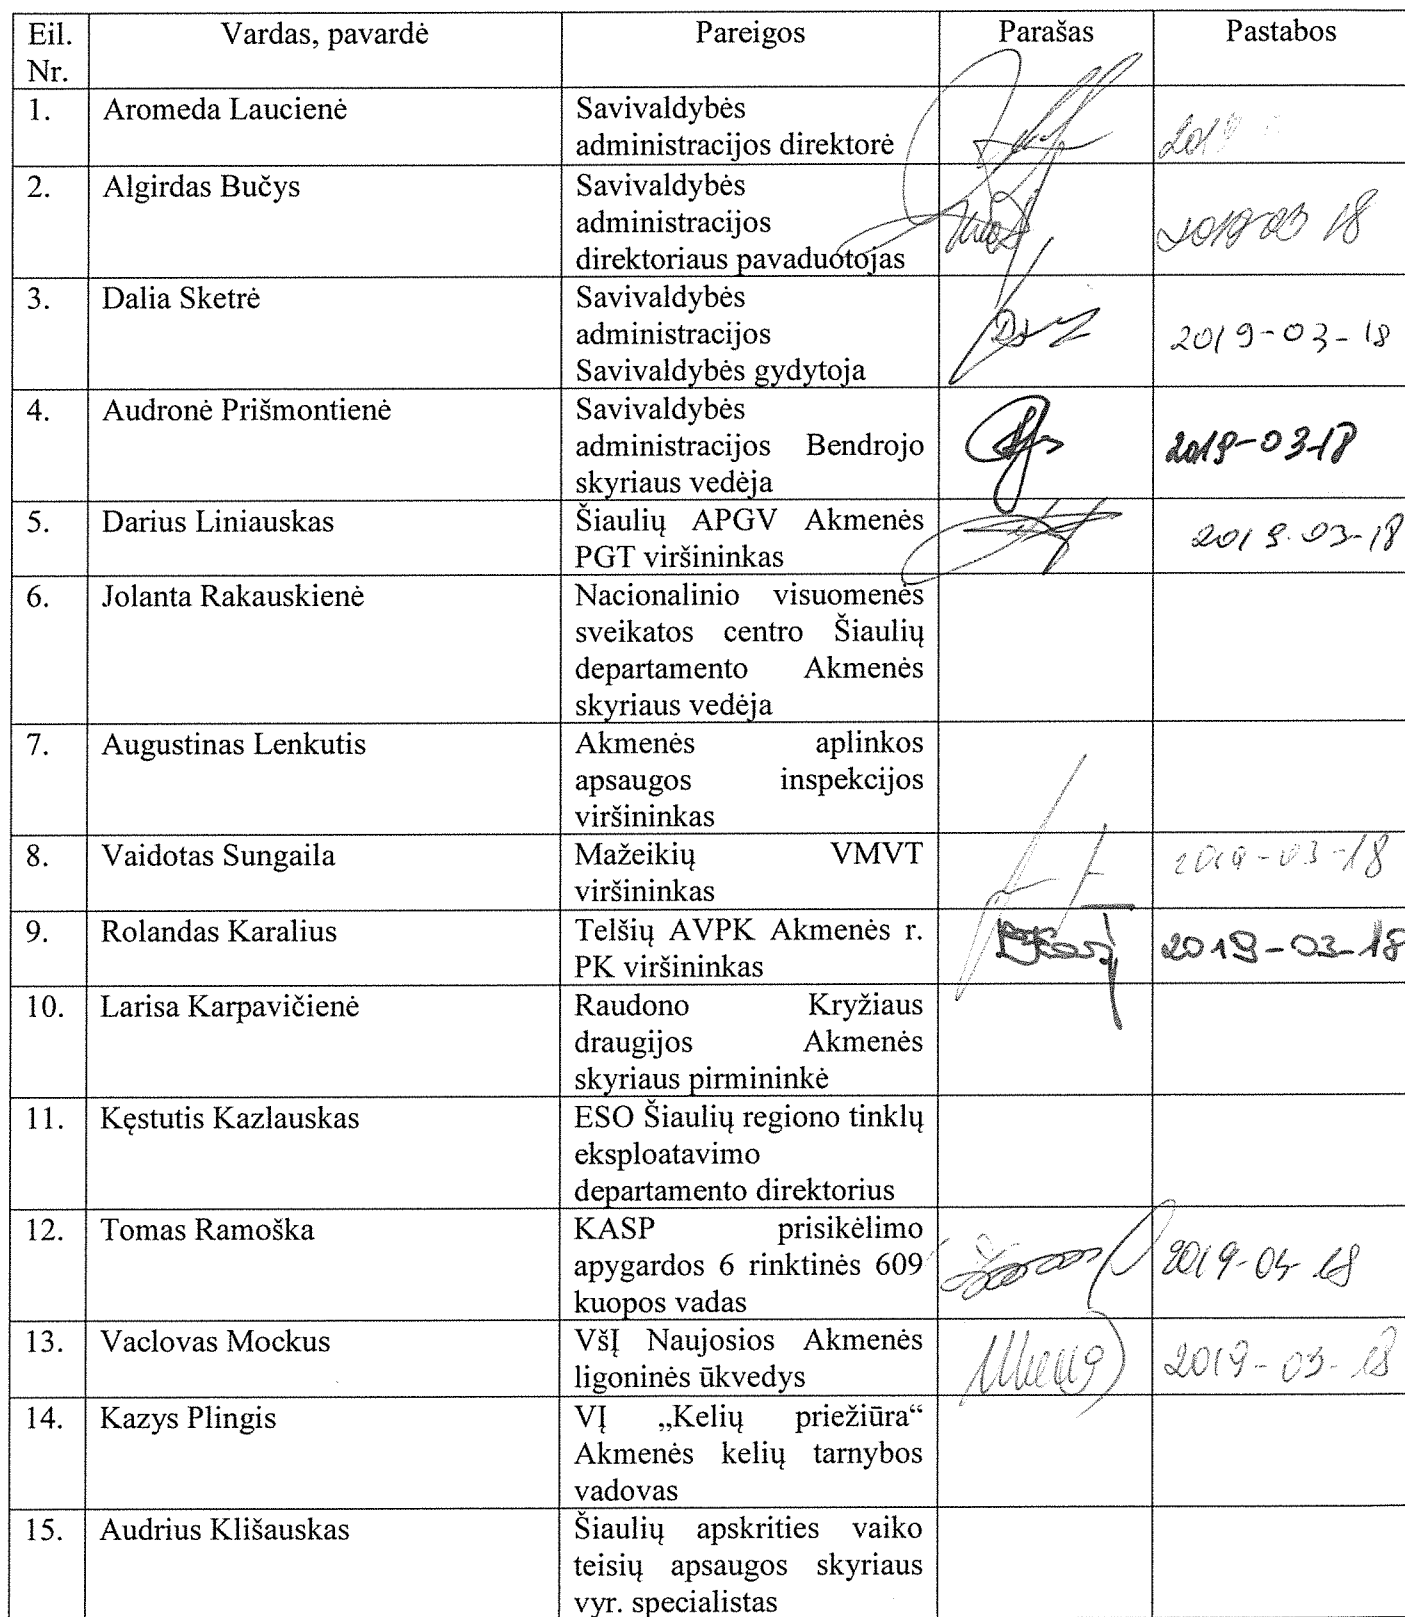 Eil. Nr. Vardas, pavardė Pareigos Parašas Pastabos
1. Aromeda Laucienė Savivaldybės
administracijos direktorė
2. Algirdas Bučys Savivaldybės
administracijos
direktoriaus pavaduotojas
2019-03 18
3. Dalia Sketrė Savivaldybės
administracijos
Savivaldybės gydytoja
2019-03-18
4. Audronė Prišmontienė Savivaldybės
administracijos Bendrojo
skyriaus vedėja
2019-03-18
5. Darius Liniauskas Šiaulių APGV Akmenės
PGT viršininkas
2019.03-18
6. Jolanta Rakauskienė Nacionalinio visuomenės
sveikatos centro Šiaulių
departamento Akmenės
skyriaus vedėja
7. Augustinas Lenkutis Akmenės aplinkos
apsaugos inspekcijos
viršininkas
8. Vaidotas Sungaila Mažeikių VMVT
viršininkas
2019-03-18
9. Rolandas Karalius Telšių AVPK Akmenės r.
PK viršininkas
2019-03-18
10. Larisa Karpavičienė Raudono Kryžiaus
draugijos Akmenės
skyriaus pirmininkė
11. Kęstutis Kazlauskas ESO Šiaulių regiono tinklų
eksploatavimo
departamento direktorius
12. Tomas Ramoška KASP prisikėlimo
apygardos 6 rinktinės 609
kuopos vadas
13. Vaclovas Mockus VšĮ Naujosios Akmenės
ligoninės ūkvedys
2019-03-18
14. Kazys Plingis VĮ „Kelių priežiūra“
Akmenės kelių tarnybos
vadovas
15. Audrius Klišauskas Šiaulių apskrities vaiko
teisių apsaugos skyriaus
vyr. specialistas